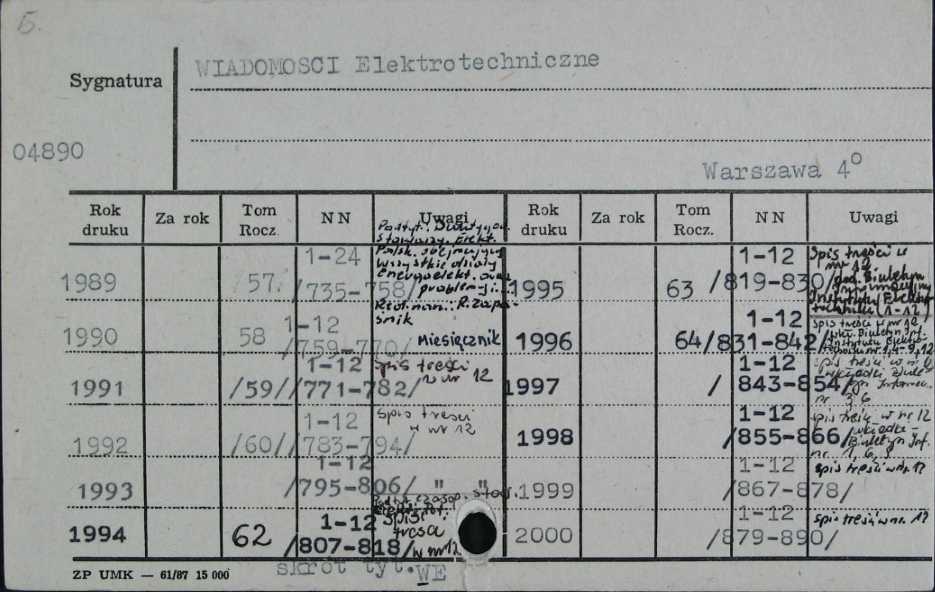 5.
WIADOMOSCI Elektrotechniczne
Sygnatura
04890
Warszawa 4°
Rok druku Za rok Tom Rocz. N N Uwagi Rok druku Za rok Tom Rocz. N N Uwagi
1989 57. 1-24 /735-758/
Stowarzy. Elekt.
Polsk. obejmujący
wszystkie działy
energoelekt. oraz
problemy i.
Red. nan.: R. Zapa-
śnik
1990 58 1-12 /759-770/ miesięcznik
1991 /59/ 1-12 /771-782/ spis treści w nr 12
1992 /60/ 1-12 /783-794/ Spis treści w nr 12
1993 1-12 /795-806/ " "
1994 62 1-12 /807-818/ spis treści w nr 12
1995 63 1-12 /819-830/ Spis treści w nr 12
dod. Biuletyn
Informacyjny
Instytutu Elektro-
techniki (1-12)
1996 64 1-12 /831-842/ spis treści w nr 12
wkł. Biuletyn Inf.
Instytutu Elektro-
1997 1-12 /843-854/ spis treści w nr
1998 1-12 /855-866/ spis treści w nr 12
wkładka-
Biuletyn Inf.
nr. 1, 6, 9
1999 1-12 /867-878/ spis treści w nr. 12
2000 1-12 /879-890/ spis treści w nr. 12
ZP UMK — 61/87 15 000
skrót tyt. WE